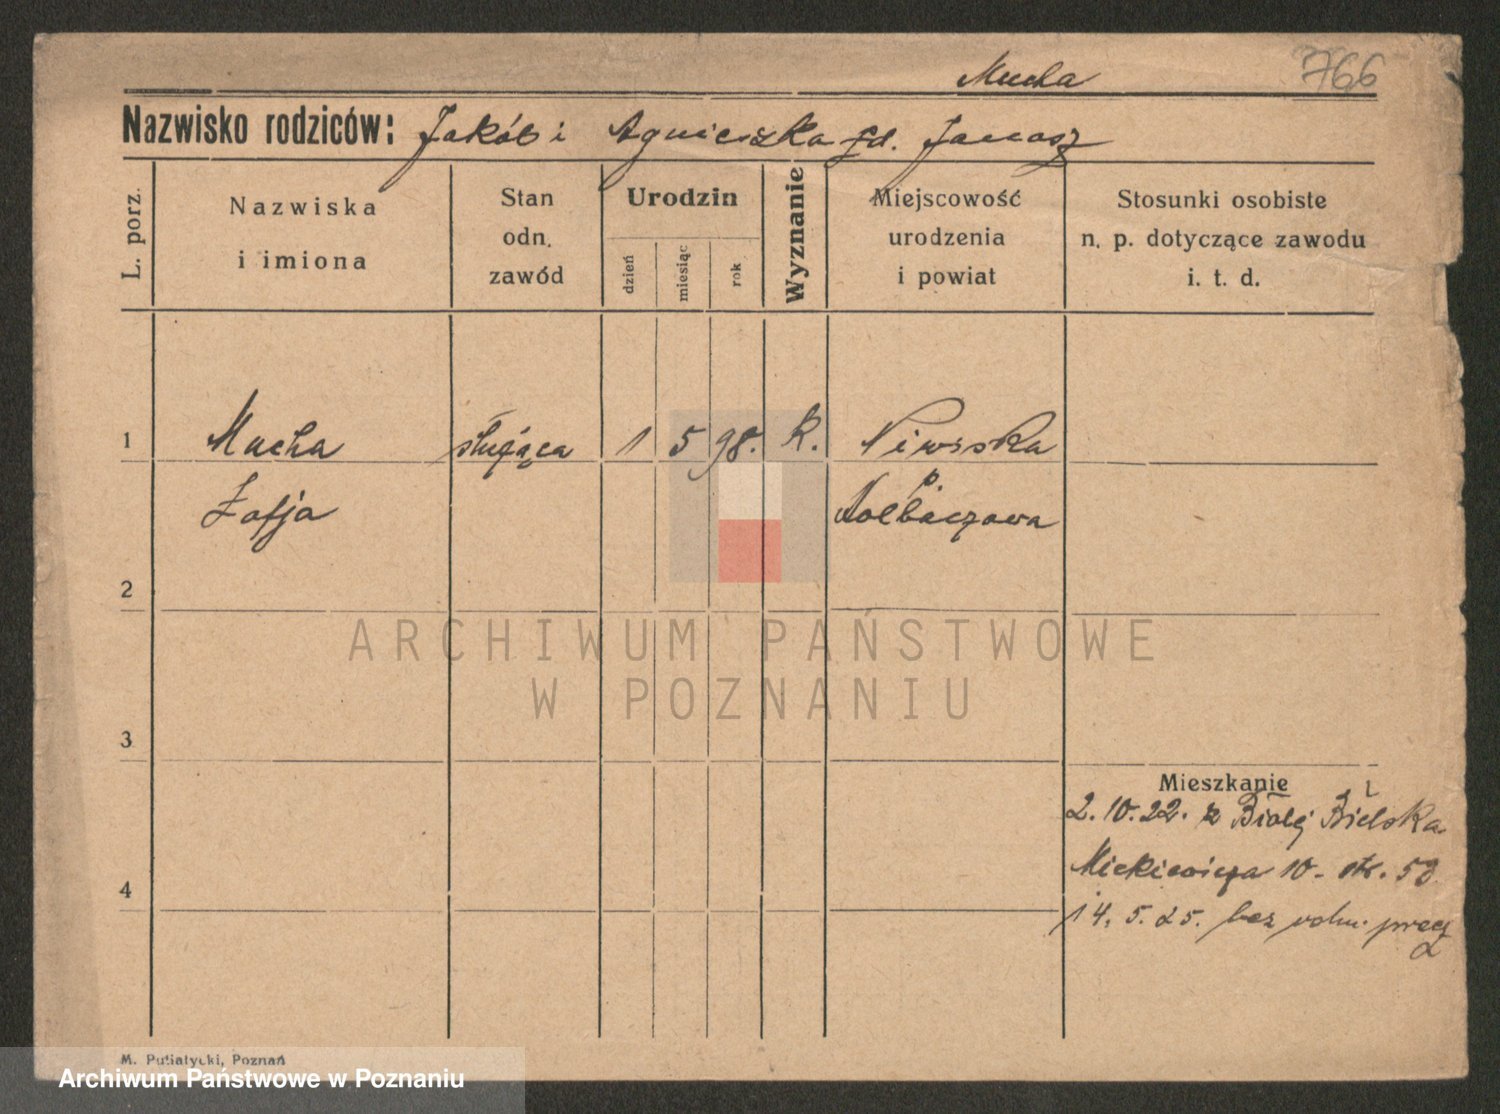 Mucha 766
Nazwisko rodziców: Jakób i Agnieszka zd. Janosz
L. porz.
Nazwiska
i imiona
Stan
odn.
zawód
Urodzin
dzień
miesiąc
rok
Wyznanie
Miejscowość
urodzenia
i powiat
Stosunki osobiste
n. p. dotyczące zawodu
i. t. d.
1 Mucha służąca 1 5 98. k. Niwiska
Zofja p. Kolbuszowa
2
3
Mieszkanie
2. 10. 22. z Białej Bielska
Mickiewicza 10 - str. 53
4
14. 5. 25. bez
M. Putiatycki, Poznań
ARCHIWUM PAŃSTWOWE
W POZNANIU
Archiwum Państwowe w Poznaniu